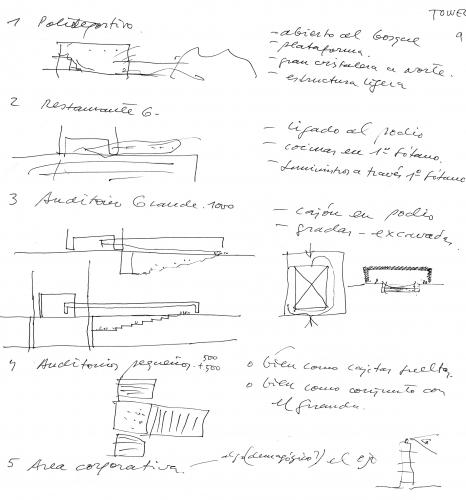 TOWER
9
1 Polideportivo.
- abierto al bosque
- plataforma.
- gran cristalera a norte.
- estructura ligera
2 Restaurante G.
- ligado al podio
- cocinas en 1º sótano.
- suministros a través 1º sótano
3 Auditorio Grande. 1000
- cajón en podio
- gradas - excavadas.
4 Auditorios pequeños. 500 + 500
o bien como cajitas sueltas.
o bien como conjunto con
el grande.
5 Area corporativa. (demagógico?) el eje